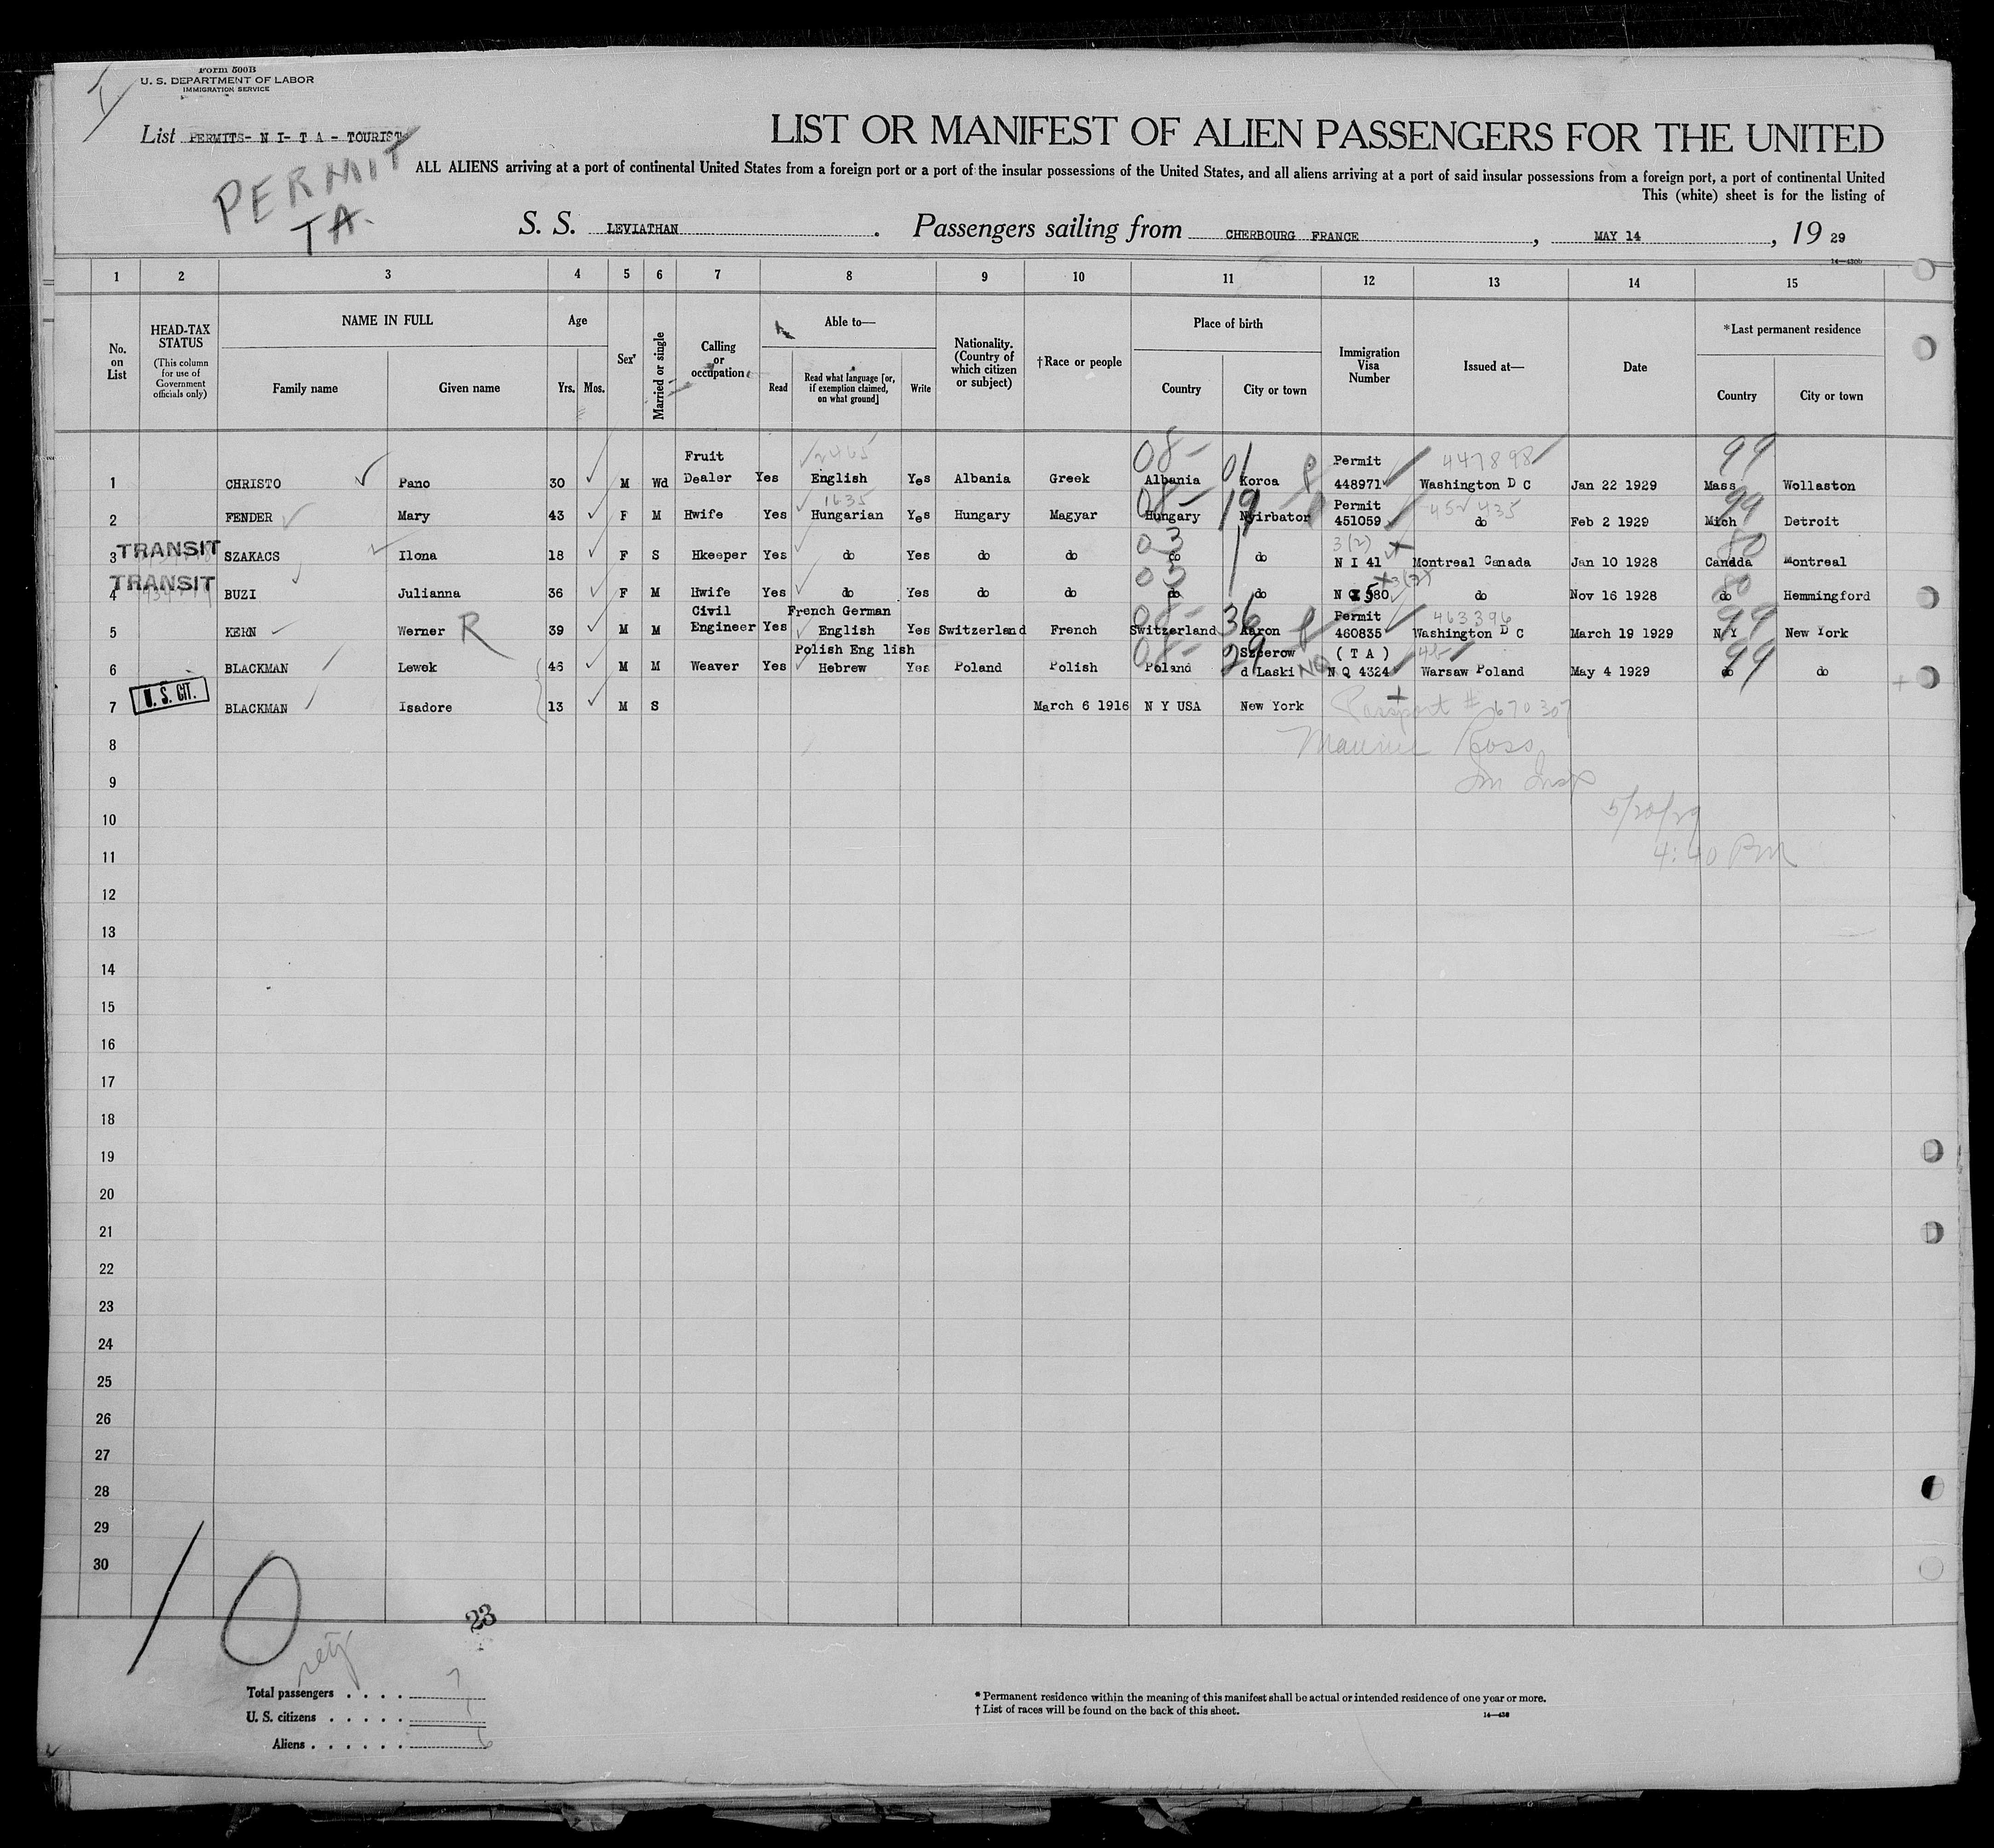 Form 500B
U. S. DEPARTMENT OF LABOR
IMMIGRATION SERVICE
List PERMITS- N I- T A - TOURIST
PERMIT
TA.
LIST OR MANIFEST OF ALIEN PASSENGERS FOR THE UNITED
ALL ALIENS arriving at a port of continental United States from a foreign port or a port of the insular possessions of the United States, and all aliens arriving at a port of said insular possessions from a foreign port, a port of continental United
This (white) sheet is for the listing of
S. S. LEVIATHAN . Passengers sailing from CHERBOURG FRANCE , MAY 14 , 19 29
1 2 3 4 5 6 7 8 9 10 11 12 13 14 15
No. on List
HEAD-TAX STATUS (This column for use of Government officials only)
NAME IN FULL
Family name Given name
Age
Yrs. Mos.
Sex
Married or single
Calling or occupation
Able to—
Read Read what language [or, if exemption claimed, on what ground] Write
Nationality. (Country of which citizen or subject)
†Race or people
Place of birth
Country City or town
Immigration Visa Number
Issued at—
Date
*Last permanent residence
Country City or town
08- 01 99
Fruit 2465 Permit 447898
1 CHRISTO Pano 30 M Wd Dealer Yes English Yes Albania Greek Albania Koroa 448971 Washington D C Jan 22 1929 Mass Wollaston
08- 19 1635 Permit 452435 99
2 FENDER Mary 43 F M Hwife Yes Hungarian Yes Hungary Magyar Hungary Nyirbator 451059 do Feb 2 1929 Mich Detroit
TRANSIT 03 3(2) 80
3 SZAKACS Ilona 18 F S Hkeeper Yes do Yes do do do do N I 41 Montreal Canada Jan 10 1928 Canada Montreal
TRANSIT 03 80
4 BUZI Julianna 36 F M Hwife Yes do Yes do do do do N Q 580 do Nov 16 1928 do Hemmingford
Civil French German 08- 36 Permit 463396 99
5 KERN Werner R 39 M M Engineer Yes English Yes Switzerland French Switzerland Aaron 460835 Washington D C March 19 1929 N Y New York
Polish Eng lish 08- 29 Szcerow ( T A ) 99
6 BLACKMAN Lewek 46 M M Weaver Yes Hebrew Yes Poland Polish Poland d Laski NQ N Q 4324 Warsaw Poland May 4 1929 do do
U. S. CIT.
7 BLACKMAN Isadore 13 M S March 6 1916 N Y USA New York Passport # 670307
8 Maurice Ross
9 Im Insp
10 5/20/29
11 4:40 PM
12
13
14
15
16
17
18
19
20
21
22
23
24
25
26
27
28
29
30
10
23
Total passengers . . . . 7
U. S. citizens . . . . . 1
Aliens . . . . . . 6
* Permanent residence within the meaning of this manifest shall be actual or intended residence of one year or more.
† List of races will be found on the back of this sheet.